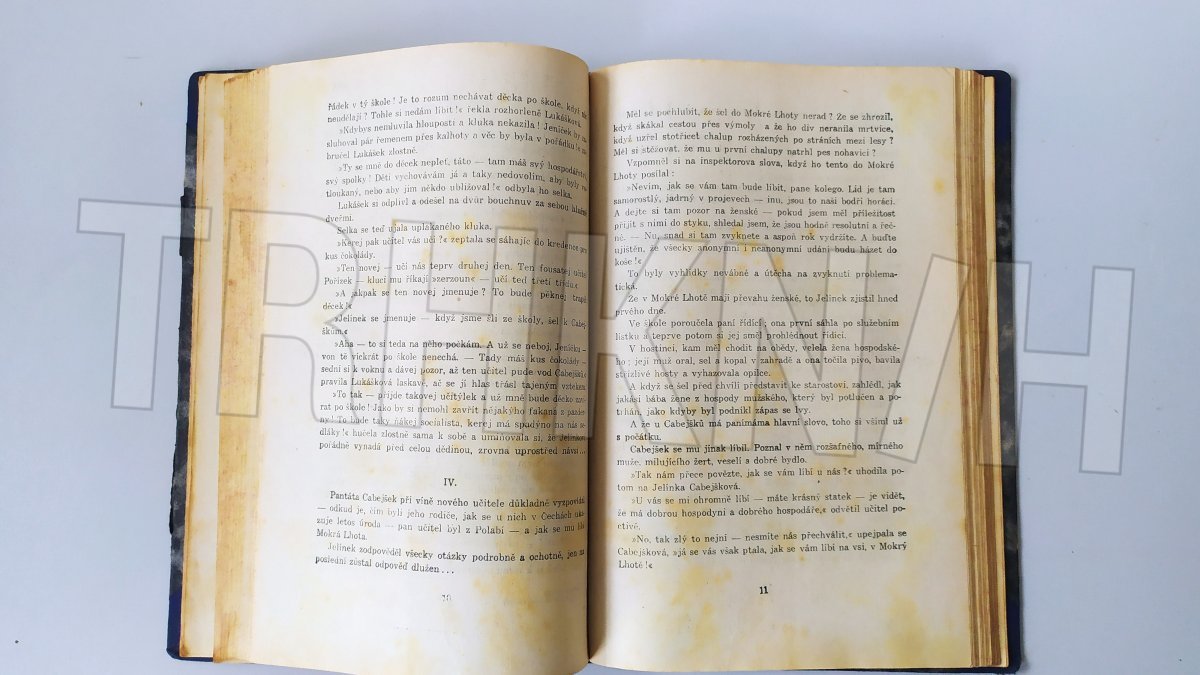 řádek v tý škole! Je to rozum nechávat děcka po škole, když
neudělají? Tohle si nedám líbit!« řekla rozhorleně Lukášková.
»Kdybys nemluvila hlouposti a kluka nekazila! Jeníček by
sluhoval pár řemenem přes kalhoty a věc by byla v pořádku!«
bručel Lukášek zlostně.
»Ty se mně do děcek nepleť, táto — tam máš svý hospodářství,
svý spolky! Děti vychovávám já a taky nedovolím, aby byly
tloukaný, nebo aby jim někdo ubližoval!« odbyla ho selka.
Lukášek si odplivl a odešel na dvůr bouchnuv za sebou
dveřmi.
Selka se teď ujala uplakaného kluka.
»Kerej pak učitel vás učí?« zeptala se sáhajíc do kredence pro
kus čokolády.
»Ten novej — učí nás teprv druhej den. Ten fousatej učitel
Pořízek — kluci mu říkají »zerzoun« — učí teď třetí třídu.«
»A jakpak se ten novej jmenuje? To bude pěknej trapič
děcek!«
»Jelínek se jmenuje — když jsme šli ze školy, šel k Cabej-
škům.«
»Aha — to si teda na něho počkám. A už se neboj, Jeníčku —
von tě víckrát po škole nenechá. — Tady máš kus čokolády —
sedni si k voknu a dávej pozor, až ten učitel pude vod Cabejšků,«
pravila Lukášková laskavě, ač se jí hlas třásl tajeným vztekem.
»To tak — přijde takovej učitýlek a už mně bude děcko zví-
rat po škole! Jako by si nemohl zavřít nějakýho fakana z pazder-
ny! To bude taky ňákej socialista, kerej má spadýno na nás se-
dláky!« hučela zlostně sama k sobě a umiňovala si, že Jelínkovi
pořádně vynadá před celou dědinou, zrovna uprostřed návsi...
IV.
Pantáta Cabejšek při víně nového učitele důkladně vyzpovídal
— odkud je, čím byli jeho rodiče, jak se u nich v Čechách
zuje letos úroda — pan učitel byl z Polabí — a jak se mu líbí
Mokrá Lhota.
Jelínek zodpověděl všecky otázky podrobně a ochotně, jen na
poslední zůstal odpověď dlužen...
10
Měl se pochlubit, že šel do Mokré Lhoty nerad? Že se zhrozil,
když skákal cestou přes výmoly a že ho div neranila mrtvice,
když uzřel stotřicet chalup rozházených po stráních mezi lesy?
Měl si stěžovat, že mu u první chalupy natrhl pes nohavici?
Vzpomněl si na inspektorova slova, když ho tento do Mokré
Lhoty posílal:
»Nevím, jak se vám tam bude líbit, pane kolego. Lid je tam
samorostlý, jadrný v projevech — inu, jsou to naši bodří horáci.
A dejte si tam pozor na ženské — pokud jsem měl příležitost
přijít s nimi do styku, shledal jsem, že jsou hodně resolutní a řeč-
né. — Nu, snad si tam zvyknete a aspoň rok vydržíte. A buďte
ujištěn, že všecky anonymní i neanonymní udání budu házet do
koše!«
To byly vyhlídky nevábné a útěcha na zvyknutí problema-
tická.
Že v Mokré Lhotě mají převahu ženské, to Jelínek zjistil hned
prvého dne.
Ve škole poroučela paní řídící, ona první sáhla po služebním
lístku a teprve potom si jej směl prohlédnout řídící.
V hostinci, kam měl chodit na obědy, velela žena hospodské-
ho; její muž oral, sel a kopal v zahradě a ona točila pivo, bavila
střízlivé hosty a vyhazovala opilce.
A když se šel před chvílí představit ke starostovi, zahlédl, jak
jakási bába žene z hospody mužského, který byl potlučen a po-
trhán, jako kdyby byl podnikl zápas se lvy.
A že u Cabejšků má panímáma hlavní slovo, toho si všiml už
s počátku.
Cabejšek se mu jinak líbil. Poznal v něm rozšafného, mírného
muže, milujícího žert, veselí a dobré bydlo.
»Tak nám přece povězte, jak se vám líbí u nás?« uhodila po-
tom na Jelínka Cabejšková.
»U vás se mi ohromně líbí — máte krásný statek — je vidět,
že má dobrou hospodyni a dobrého hospodáře,« odvětil učitel po-
ctivě.
»No, tak zlý to nejni — nesmíte nás přechválit,« upejpala se
Cabejšková, »já se vás však ptala, jak se vám líbí na vsi, v Mokrý
Lhotě!«
11
TRHKNIH